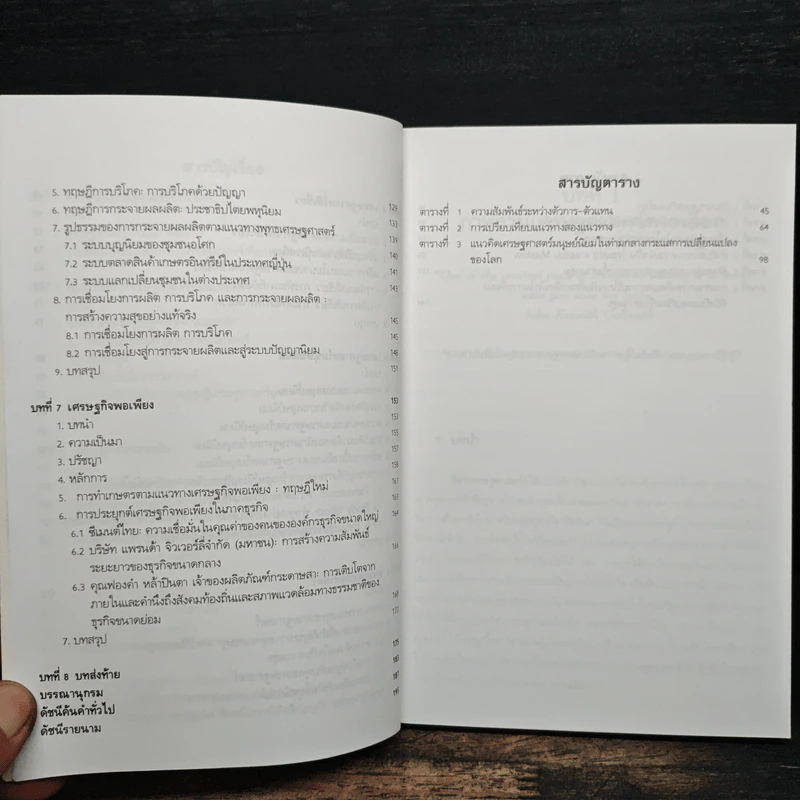 5. ทฤษฎีการบริโภค: การบริโภคด้วยปัญญา
6. ทฤษฎีการกระจายผลผลิต: ประชาธิปไตยพหุนิยม 129
7. รูปธรรมของการกระจายผลผลิตตามแนวทางพุทธเศรษฐศาสตร์ 133
7.1 ระบบบุญนิยมของชุมชนอโศก 139
7.2 ระบบตลาดสินค้าเกษตรอินทรีย์ในประเทศญี่ปุ่น 141
7.3 ระบบแลกเปลี่ยนชุมชนในต่างประเทศ 143
8. การเชื่อมโยงการผลิต การบริโภค และการกระจายผลผลิต :
การสร้างความสุขอย่างแท้จริง 145
8.1 การเชื่อมโยงการผลิต การบริโภค 145
8.2 การเชื่อมโยงสู่การกระจายผลิตและสู่ระบบปัญญานิยม 148
9. บทสรุป 151
บทที่ 7 เศรษฐกิจพอเพียง 153
1. บทนำ 153
2. ความเป็นมา 155
3. ปรัชญา 157
4. หลักการ 159
5. การทำเกษตรตามแนวทางเศรษฐกิจพอเพียง : ทฤษฎีใหม่ 161
6. การประยุกต์เศรษฐกิจพอเพียงในภาคธุรกิจ 163
6.1 ซีเมนต์ไทย: ความเชื่อมั่นในคุณค่าของคนขององค์กรธุรกิจขนาดใหญ่ 164
6.2 บริษัท แพรนด้า จิวเวอร์ลี่จำกัด (มหาชน): การสร้างความสัมพันธ์
ระยะยาวของธุรกิจขนาดกลาง 166
6.3 คุณฟองคำ หล้าปินตา เจ้าของผลิตภัณฑ์กระดาษสา: การเติบโตจาก
ภายในและคำนึงถึงสังคมท้องถิ่นและสภาพแวดล้อมทางธรรมชาติของ
ธุรกิจขนาดย่อม
7. บทสรุป
บทที่ 8 บทส่งท้าย
บรรณานุกรม 183
ดัชนีค้นคำทั่วไป 187
ดัชนีรายนาม
สารบัญตาราง
ตารางที่ 1 ความสัมพันธ์ระหว่างตัวการ-ตัวแทน 45
ตารางที่ 2 การเปรียบเทียบแนวทางสองแนวทาง 64
ตารางที่ 3 แนวคิดเศรษฐศาสตร์มนุษย์นิยมในท่ามกลางกระแสการเปลี่ยนแปลง
ของโลก 98